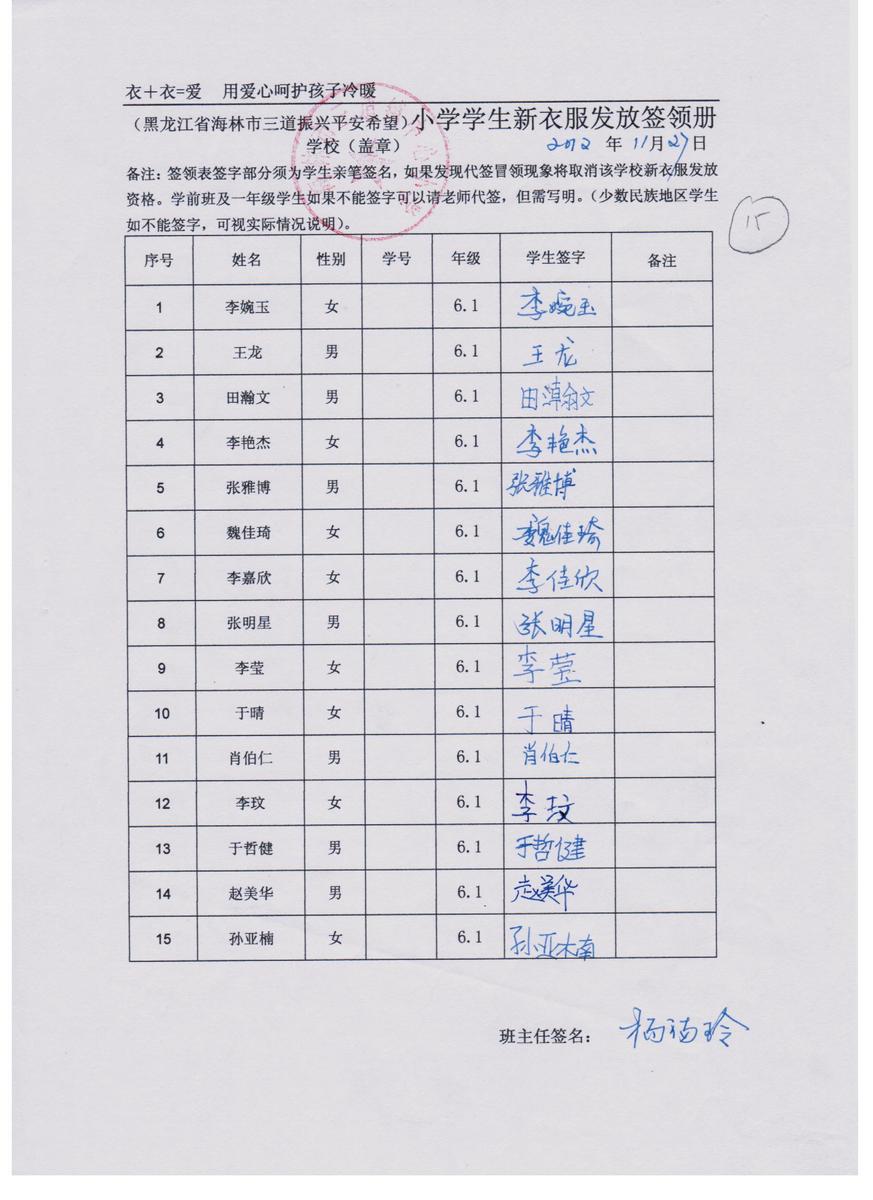 衣＋衣=爱 用爱心呵护孩子冷暖
（黑龙江省海林市三道振兴平安希望）小学学生新衣服发放签领册
学校（盖章） 2012 年 11月27日
备注：签领表签字部分须为学生亲笔签名，如果发现代签冒领现象将取消该学校新衣服发放
资格。学前班及一年级学生如果不能签字可以请老师代签，但需写明。（少数民族地区学生
如不能签字，可视实际情况说明）。
15
序号 姓名 性别 学号 年级 学生签字 备注
1 李婉玉 女 6.1 李婉玉
2 王龙 男 6.1 王龙
3 田瀚文 男 6.1 田瀚文
4 李艳杰 女 6.1 李艳杰
5 张雅博 男 6.1 张雅博
6 魏佳琦 女 6.1 魏佳琦
7 李嘉欣 女 6.1 李佳欣
8 张明星 男 6.1 张明星
9 李莹 女 6.1 李莹
10 于晴 女 6.1 于晴
11 肖伯仁 男 6.1 肖伯仁
12 李玟 女 6.1 李玟
13 于哲健 男 6.1 于哲健
14 赵美华 男 6.1 赵美华
15 孙亚楠 女 6.1 孙亚楠
班主任签名： 杨福玲